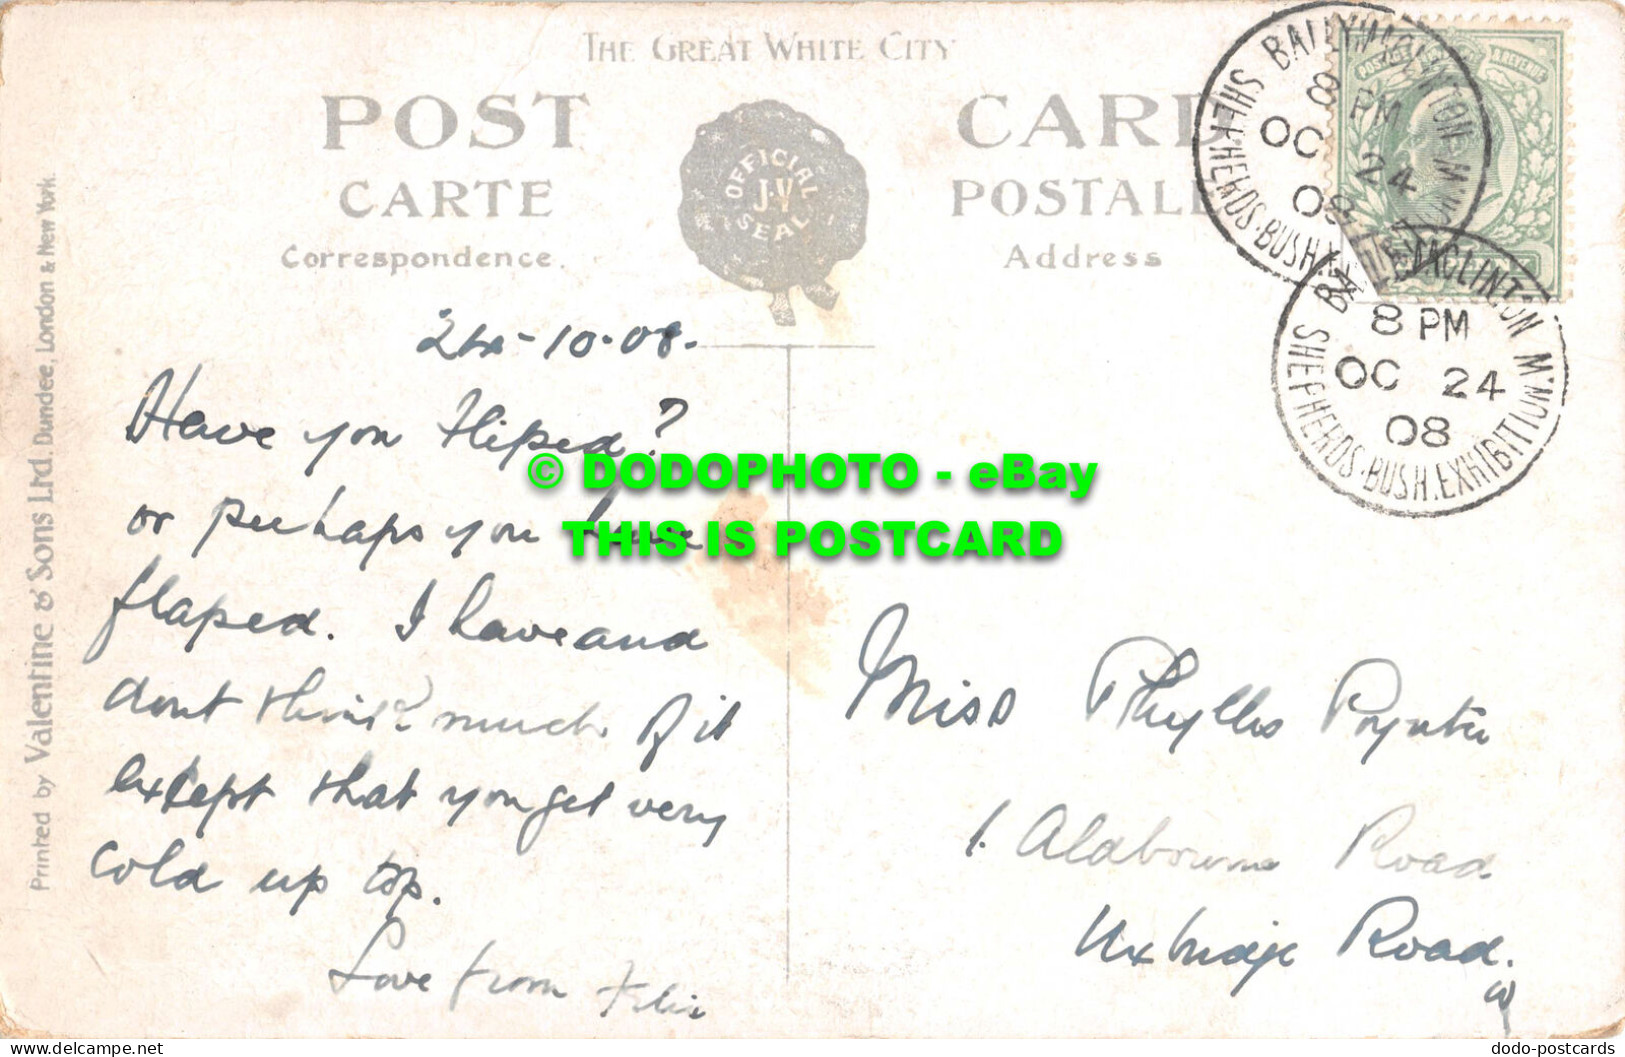 THE GREAT WHITE CITY
POST CARD
CARTE POSTALE
Correspondence.
Address
OFFICIAL
J.V
SEAL
Printed by Valentine & Sons Ltd. Dundee, London & New York.
BALLYMACLINTON
SHEPHERDS.BUSH.
8 PM
OC 24
08
BALLYMACLINTON
8 PM
OC 24
08
SHEPHERDS.BUSH.EXHIBITION
24-10-08.
Have you fliped?
or perhaps you have
flaped. I have and
dont think much of it
except that you get very
cold up top.
Love from
Miss Phyllis Poynter
1. Aldbourne Road
Uxbridge Road.
W
© DODOPHOTO - eBay
THIS IS POSTCARD
dodo-postcards
www.delcampe.net